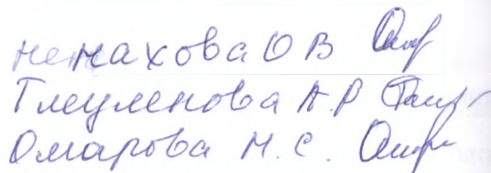 Ненахова О В
Тлеуленова А.Р
Омарова Н.С.